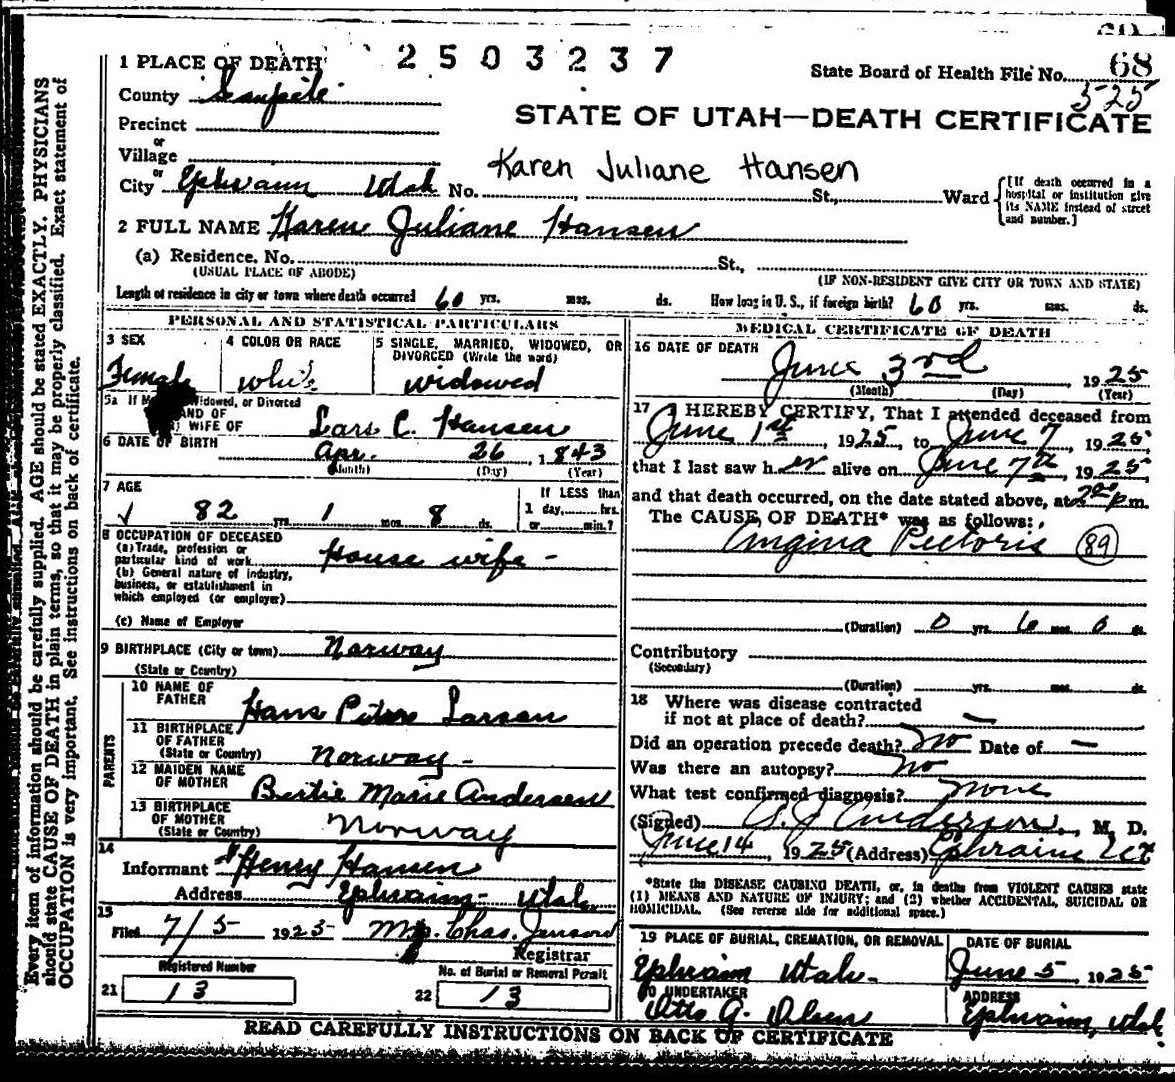 2503237
1 PLACE OF DEATH
State Board of Health File No. 68
525
County Sanpete
STATE OF UTAH—DEATH CERTIFICATE
Precinct
or
Village
Karen Juliane Hansen
or
City Ephraim Utah No. St., Ward
[If death occurred in a hospital or institution give its NAME instead of street and number.]
2 FULL NAME Karen Juliane Hansen
(a) Residence. No. St.,
(USUAL PLACE OF ABODE) (IF NON-RESIDENT GIVE CITY OR TOWN AND STATE)
Length of residence in city or town where death occurred 60 yrs. mos. ds. How long in U. S., if foreign birth? 60 yrs. mos. ds.
PERSONAL AND STATISTICAL PARTICULARS
3 SEX
Female
4 COLOR OR RACE
white
5 SINGLE, MARRIED, WIDOWED, OR DIVORCED (Write the word)
widowed
5a If Widowed, or Divorced
AND OF
WIFE OF Lars C. Hansen
6 DATE OF BIRTH Apr. 26 1843
(Month) (Day) (Year)
7 AGE
82 yrs. 1 mos. 8 ds.
If LESS than
1 day, hrs.
or min.?
8 OCCUPATION OF DECEASED
(a) Trade, profession or
particular kind of work House wife -
(b) General nature of industry,
business, or establishment in
which employed (or employer)
(c) Name of Employer
9 BIRTHPLACE (City or town) Norway
(State or Country)
PARENTS
10 NAME OF
FATHER Hans Larsen
11 BIRTHPLACE
OF FATHER
(State or Country) Norway -
12 MAIDEN NAME
OF MOTHER Bertie Marie Andersen
13 BIRTHPLACE
OF MOTHER
(State or Country) Norway
14
Informant Henry Hansen
Address Ephraim - Utah
15
Filed 7/5 1925 Chas. Registrar
Registered Number
21 13
No. of Burial or Removal Permit
22 13
MEDICAL CERTIFICATE OF DEATH
16 DATE OF DEATH
June 3rd 1925
(Month) (Day) (Year)
17 I HEREBY CERTIFY, That I attended deceased from
June 1st, 1925, to June 7, 1925,
that I last saw her alive on June 7th, 1925
and that death occurred, on the date stated above, at m.
The CAUSE OF DEATH* was as follows:
Angina Pectoris 89
(Duration) 0 yrs. 6 mos. 0 ds.
Contributory
(Secondary)
(Duration) yrs. mos. ds.
18 Where was disease contracted
if not at place of death? —
Did an operation precede death? No Date of —
Was there an autopsy? No
What test confirmed diagnosis? none
(Signed) Anderson, M. D.
June 14, 1925 (Address) Ephraim Ut
*State the DISEASE CAUSING DEATH, or, in deaths from VIOLENT CAUSES state
(1) MEANS AND NATURE OF INJURY; and (2) whether ACCIDENTAL, SUICIDAL OR
HOMICIDAL. (See reverse side for additional space.)
19 PLACE OF BURIAL, CREMATION, OR REMOVAL
Ephraim Utah -
DATE OF BURIAL
June 5, 1925
UNDERTAKER
Otto G. Olsen
ADDRESS
Ephraim, Utah
READ CAREFULLY INSTRUCTIONS ON BACK OF CERTIFICATE
Every item of information should be carefully supplied. AGE should be stated EXACTLY. PHYSICIANS
should state CAUSE OF DEATH in plain terms, so that it may be properly classified. Exact statement of
OCCUPATION is very important. See instructions on back of certificate.